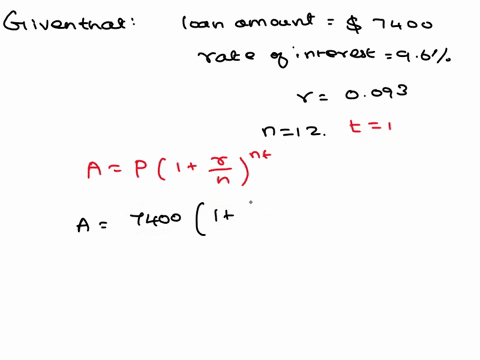 Given that: loan amount = $ 7400
rate of interest = 9.6%
r = 0.093
n=12. t=1
A = P(1+r/n)^nt
A = 7400(1+